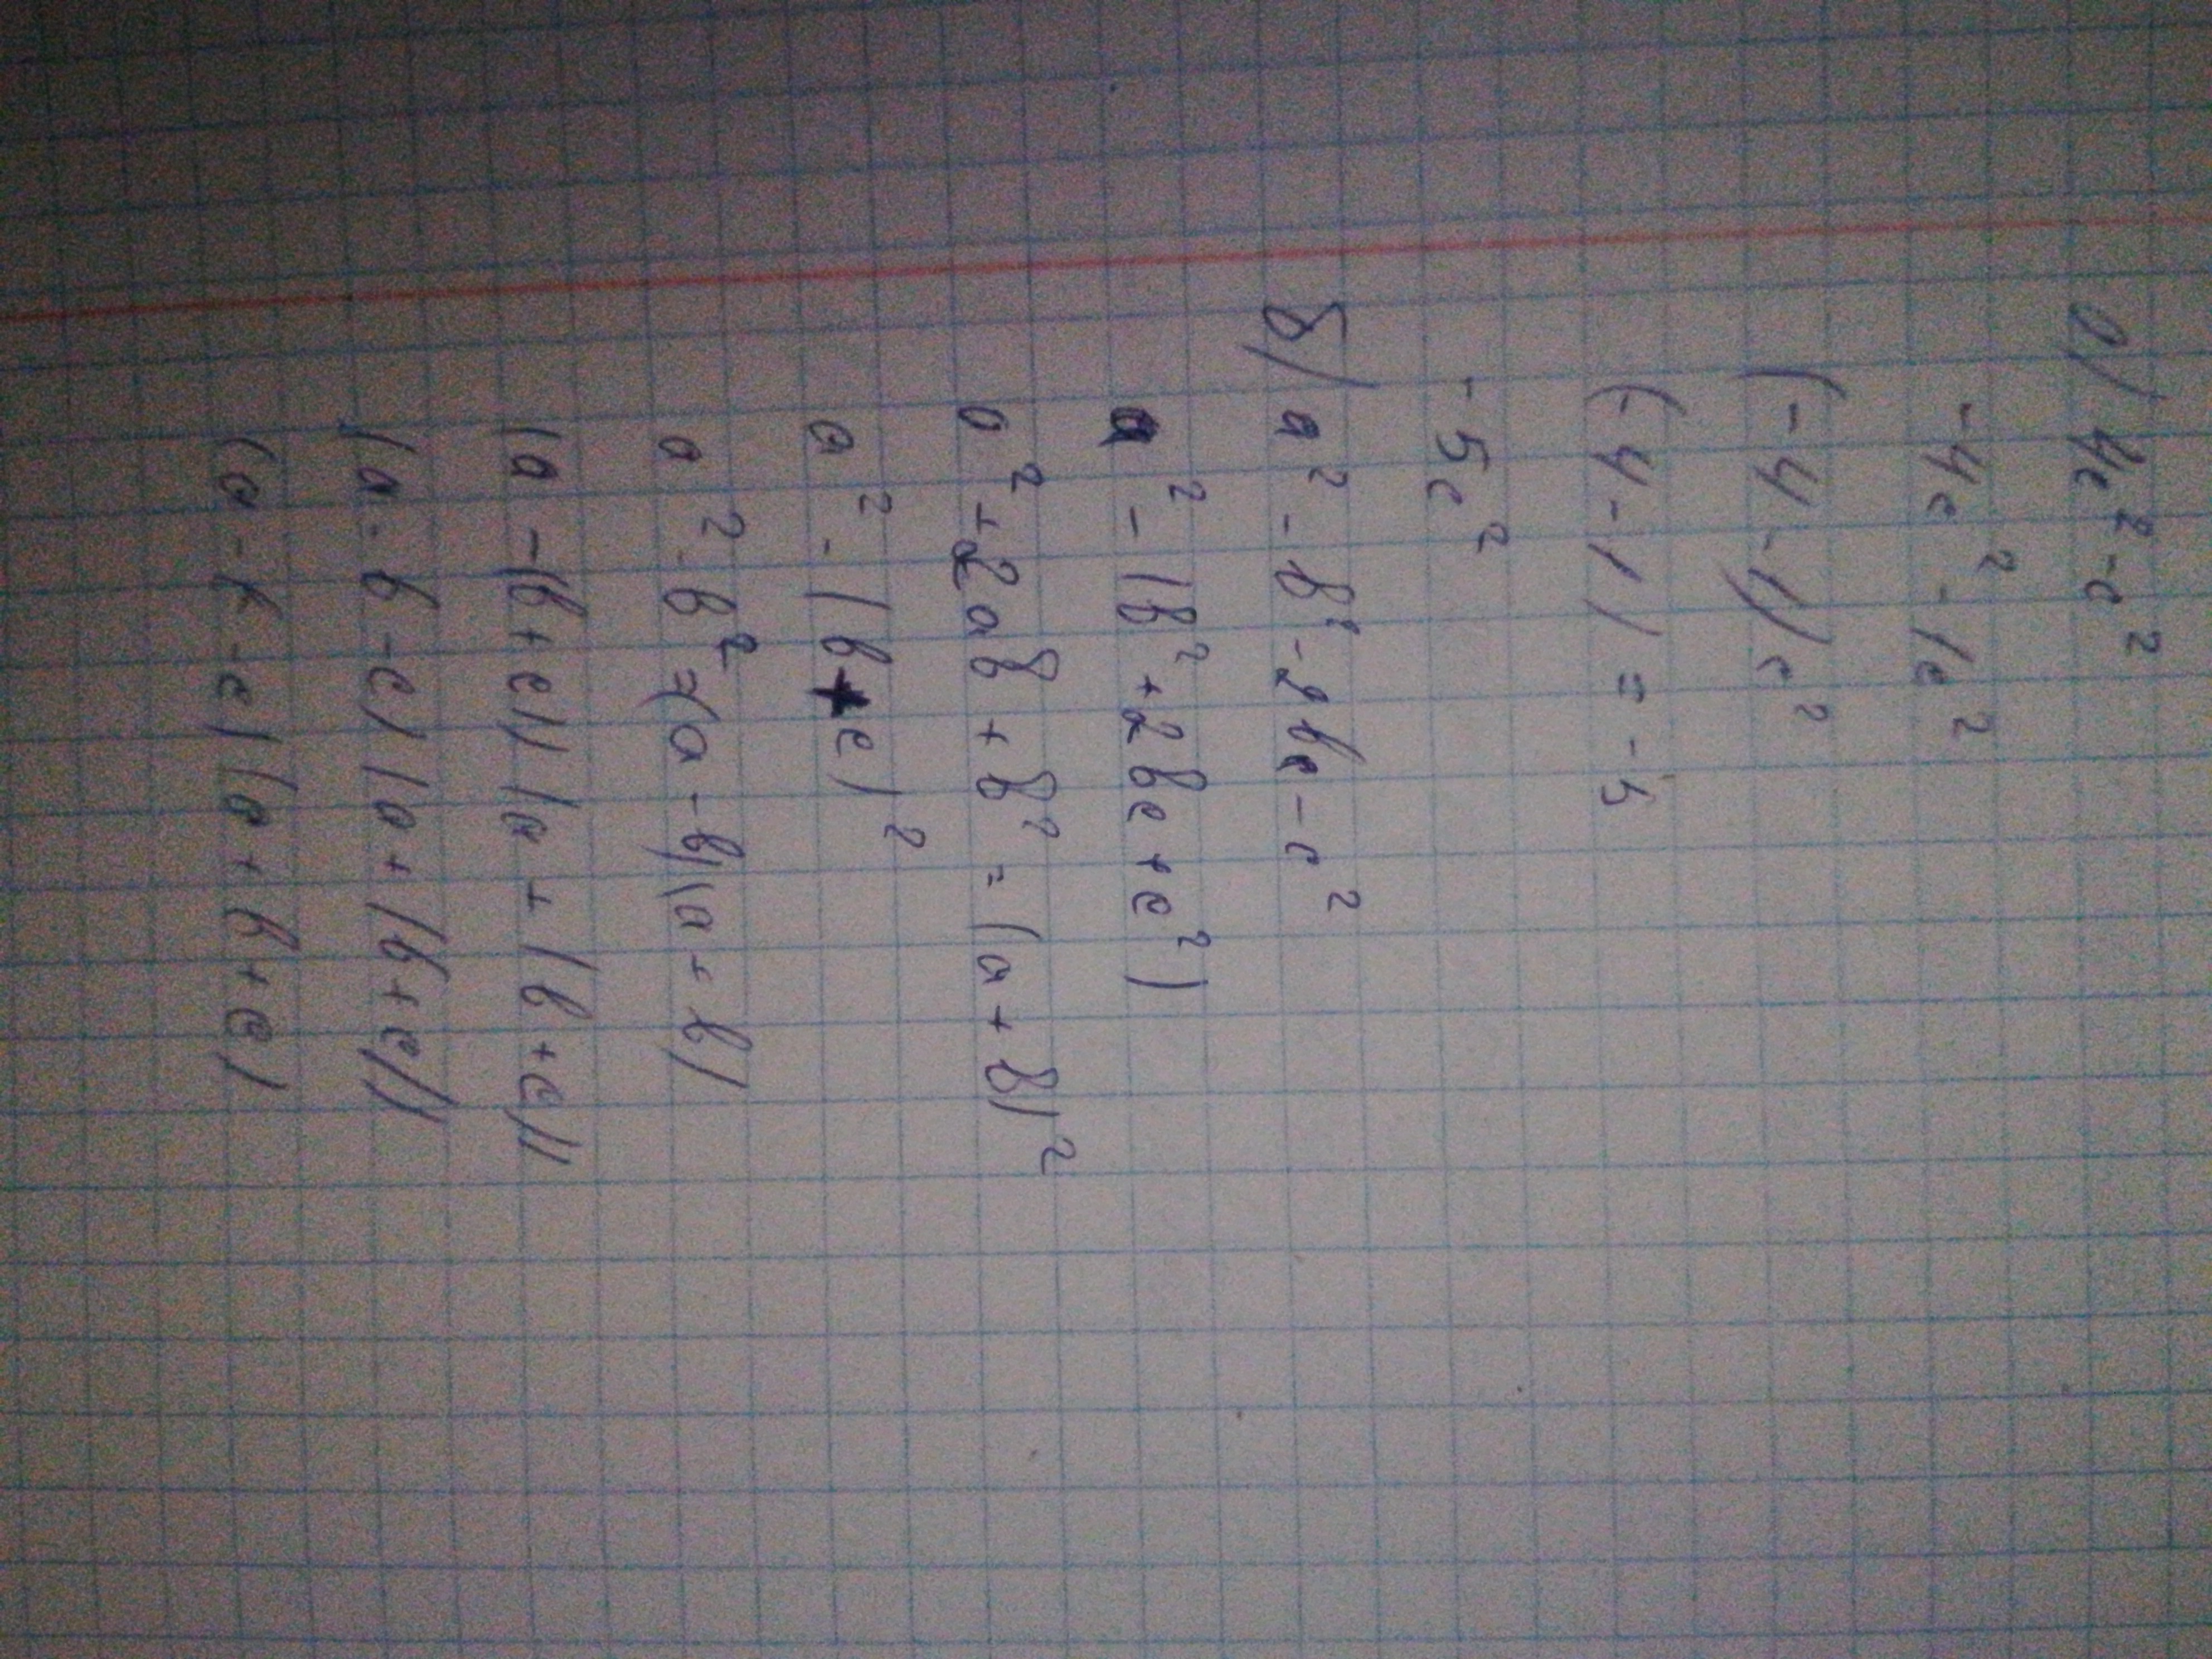 а) 4c²-c²
-4c²-1c²
(-4-1)c²
(-4-1)=-5
-5c²
б) a²-b²-2bc-c²
a²-(b²+2bc+c²)
a²+2ab+b²=(a+b)²
a²-(b+c)²
a²-b²=(a-b)(a+b)
(a-(b+c))(a+(b+c))
(a-b-c)(a+(b+c))
(a-b-c)(a+b+c)